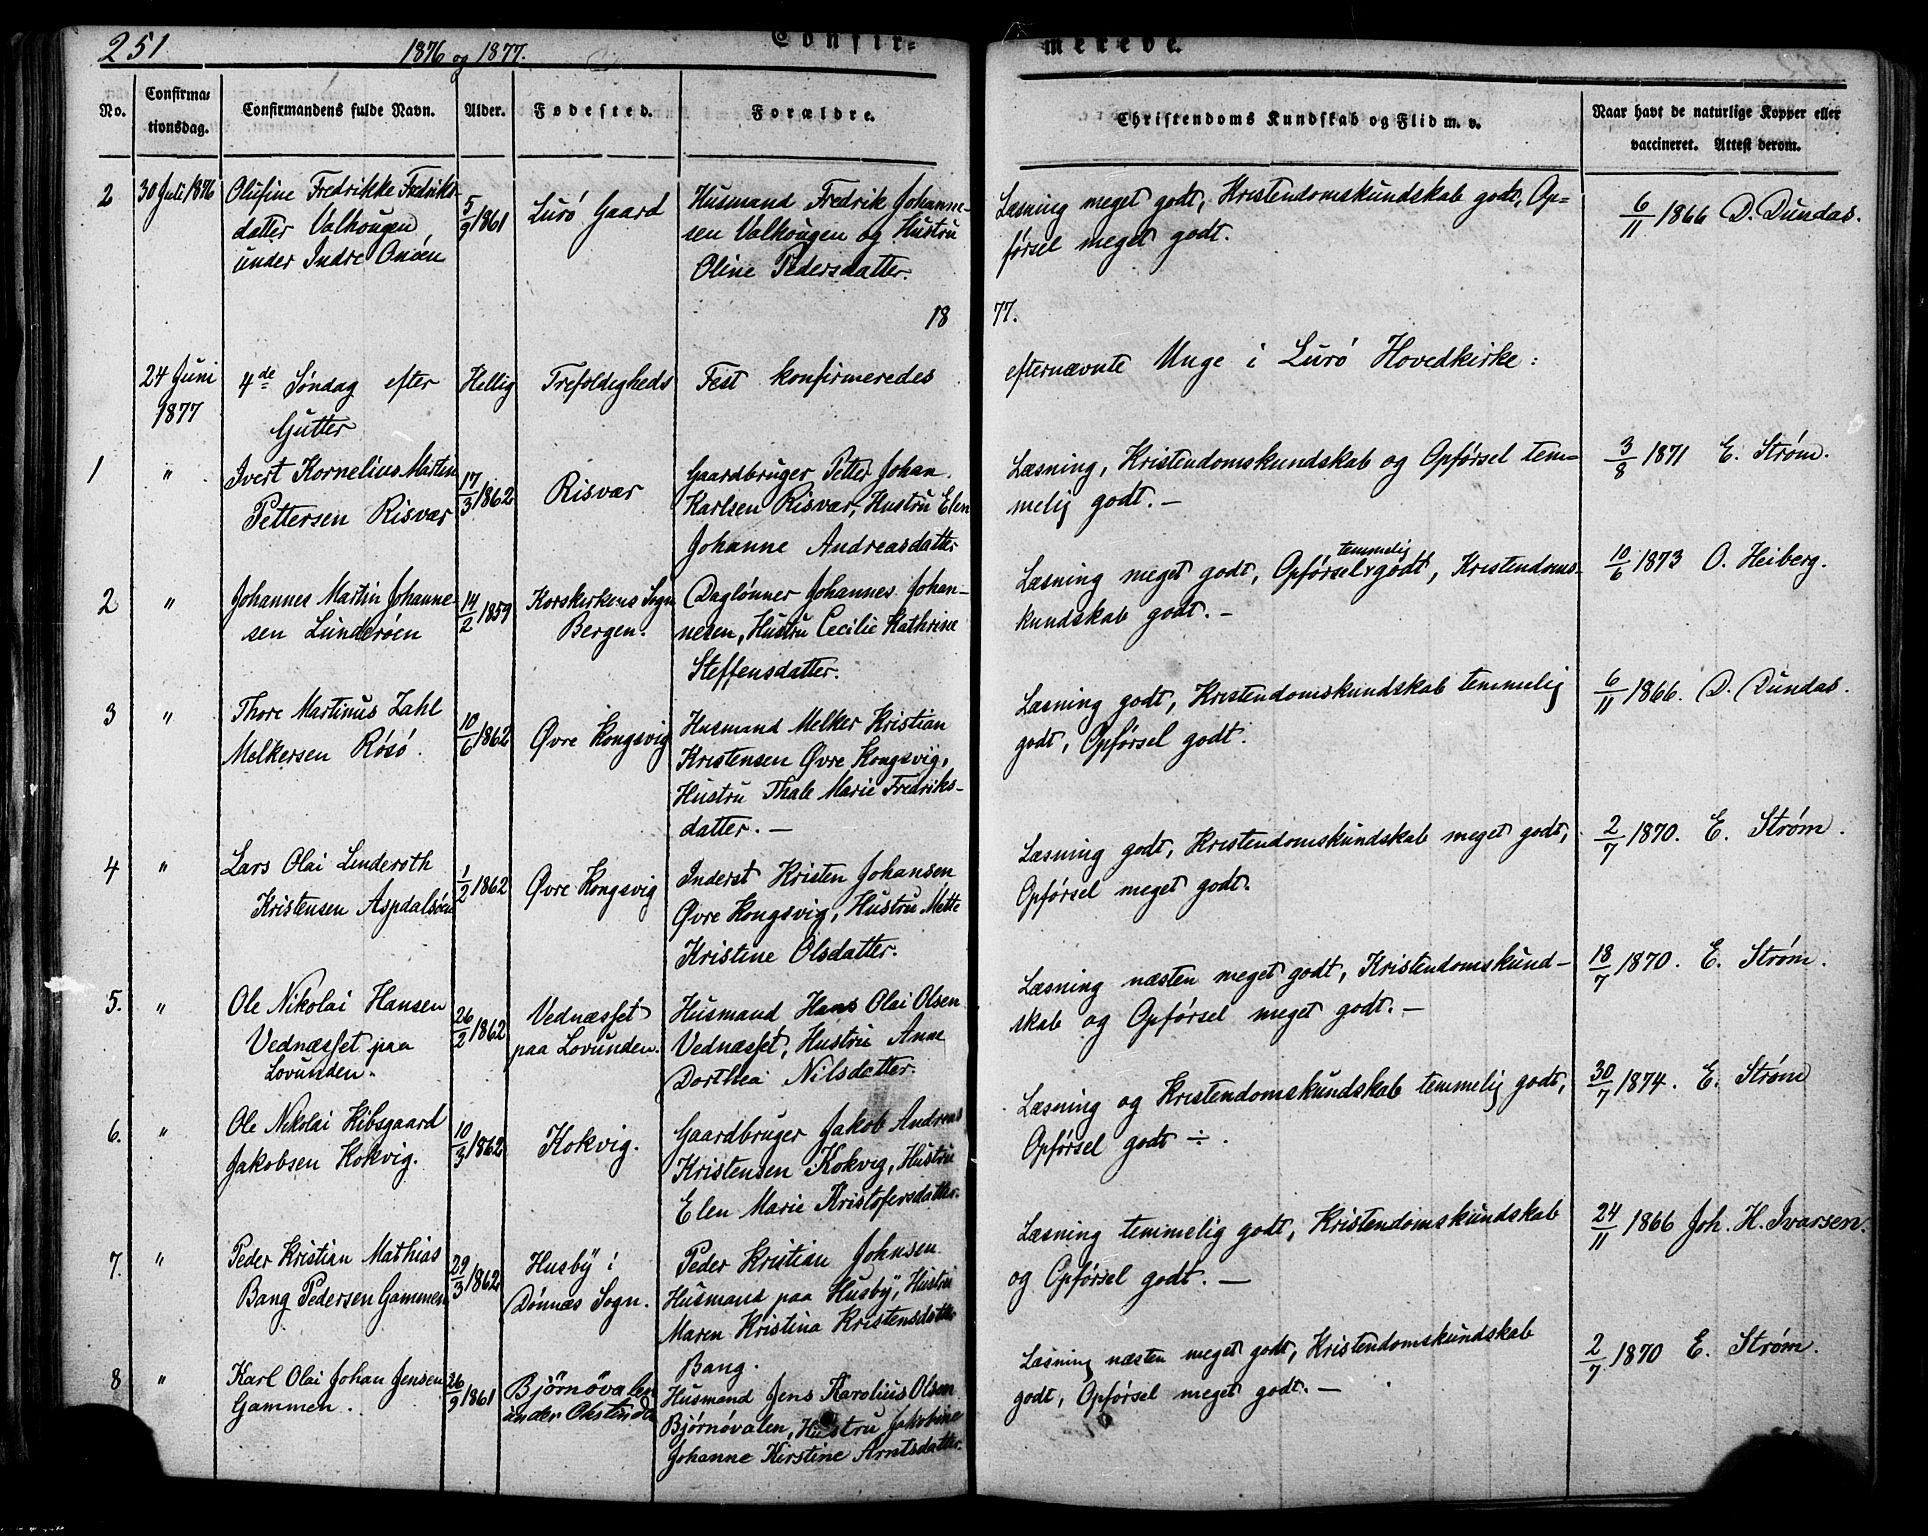 251
1876 og 1877.
Confir-
merede.
No.
Confirma-
tionsdag.
Confirmandens fulde Navn.
Alder.
Fødested.
Forældre.
Christendoms Kundskab og Flid m. v.
Naar havt de naturlige Kopper eller
vaccineret. Attest derom.
2
30 Juli 1876
Olufine Fredrikke Fredriks-
datter Valhougen,
under Indre Onøen
5/9 1861
Lurö Gaard
Husmand Fredrik Johanne-
sen Valhougen og Hustru
Oline Pedersdatter.
Læsning meget godt, Kristendomskundskab godt, Op-
førsel meget godt.
6/11 1866 D. Dundas.
18
77.
24 Juni
1877
4de Søndag efter
Hellig
Trefoldigheds
Fest konfirmeredes
efternævnte Unge i Lurö Hovedkirke:
Gutter
1
"
Ivert Kornelius Martin
Pettersen Risvær
17/3 1862
Risvær
Gaardbruger Petter Johan
Karlsen Risvær, Hustru Elen
Johanne Andreasdatter
Læsning, Kristendomskundskab og Opførsel tem-
melig godt. -
3/8 1871 E. Strøm.
2
"
Johannes Martin Johanne-
sen Lunderøen
14/2 1859
Korskirkens Sogn
Bergen.
Daglønner Johannes Johan-
nesen, Hustru Cecilie Kathrine
Steffensdatter.
temmelig
Læsning meget godt, Opførsel godt, Kristendoms-
kundskab godt. -
10/6 1873 O. Heiberg.
3
"
Thore Martinus Zahl
Melkersen Rösö.
10/6 1862
Øvre Kongsvig
Husmand Melker Kristian
Kristensen Øvre Kongsvig,
Hustru Thale Marie Fredriks-
datter. -
Læsning godt, Kristendomskundskab temmelig
godt, Opførsel godt.
6/11 1866. D. Dundas.
4
"
Lars Olai Linderoth
Kristensen Aspdalsöen
1/2 1862
Øvre Kongsvig
Inderst Kristen Johansen
Øvre Kongsvig, Hustru Mette
Kristine Olsdatter.
Læsning godt, Kristendomskundskab meget godt,
Opførsel meget godt.
2/7 1870. E. Strøm.
5.
"
Ole Nikolai Hansen
Vednæsset paa
Lovunden.
26/2 1862
Vednæsset
paa Lovunden.
Husmand Hans Olai Olsen
Vednæsset, Hustru Anne
Dorthea Nilsdatter.
Læsning næsten meget godt, Kristendomskund-
skab og Opførsel meget godt. -
18/7 1870. E. Strøm.
6.
"
Ole Nikolai Hibsgaard
Jakobsen Kokvig.
10/3 1862
Kokvig.
Gaardbruger Jakob Andreas
Kristensen Kokvig, Hustru
Elen Marie Kristofersdatter.
Læsning og Kristendomskundskab temmelig godt,
Opførsel godt ÷.
30/7 1874. E. Strøm
7.
"
Peder Kristian Mathias
Bang Pedersen Gammen
29/3 1862
Husby i
Dønnæs Sogn.
Peder Kristian Johnsen
Husmand paa Husby, Hustru
Maren Kristina Kristensdatter
Bang.
Læsning temmelig godt, Kristendomskundskab
og Opførsel godt. -
24/11 1866 Joh. H. Ivarsen.
8
"
Karl Olai Johan Jensen
Gammen.
26/9 1861
Bjørnøvalen
under
Husmand Jens Karolius Olsen
Bjørnøvalen, Hustru Jakobine
Johanne Kirstine Arntsdatter.
Læsning næsten meget godt, Kristendomskundskab
godt, Opførsel meget godt. -
2/7 1870 E. Strøm.